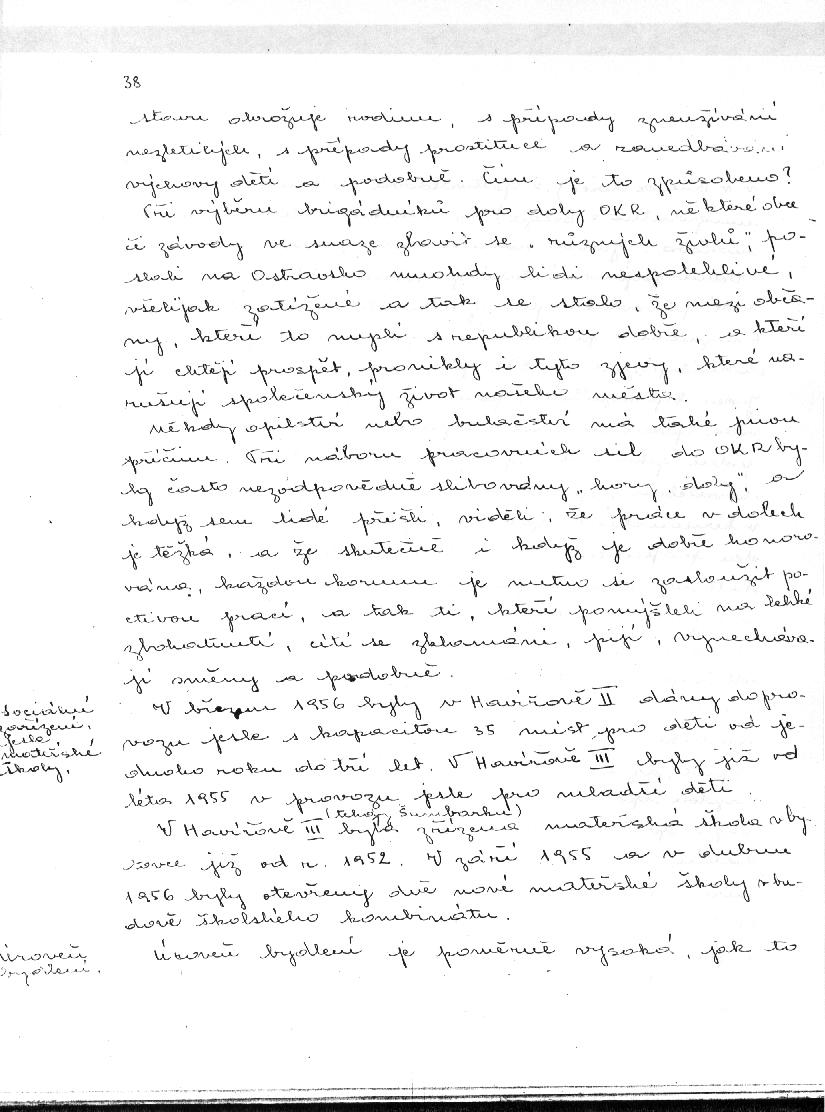 38
stavu ohrožuje rodinu, s případy zneužívání
nezletilých, s případy prostituce a zanedbává...
výchovy dětí a podobně. Čím je to způsobeno?
Při výběru brigádníků pro doly OKR, některé obce
či závody ve snaze zbavit se „různých živlů“, po-
slali na Ostravsko mnohdy lidi nespolehlivé,
všelijak zatížené a tak se stalo, že mezi obča-
ny, kteří to myslí s republikou dobře, a kteří
jí chtějí prospět, pronikly i tyto zjevy, které na-
rušují společenský život našeho města.
Někdy opilství nebo bulačství má také jinou
příčinu. Při náboru pracovních sil do OKR by-
ly často nezodpovědně slibovány „hory, doly“, a
když sem lidé přišli, viděli, že práce v dolech
je těžká, a že skutečně i když je dobře honoro-
vána, každou korunu je nutno si zasloužit po-
ctivou prací, a tak ti, kteří pomýšleli na lehké
zbohatnutí, cítí se zklamáni, pijí, vynecháva-
jí směny a podobně.
Sociální
zařízení,
jesle,
mateřské
školy.
V březnu 1956 byly v Havířově II dány do pro-
vozu jesle s kapacitou 35 míst pro děti od je-
dnoho roku do tří let. V Havířově III byly již od
léta 1955 v provozu jesle pro mladší děti.
(tehdy Šumbarku)
V Havířově III byla zřízena mateřská škola v by-
tovce již od r. 1952. V září 1955 a v dubnu
1956 byly otevřeny dvě nové mateřské školy v bu-
dově školského kombinátu.
Úroveň
bydlení.
Úroveň bydlení je poměrně vysoká, jak to